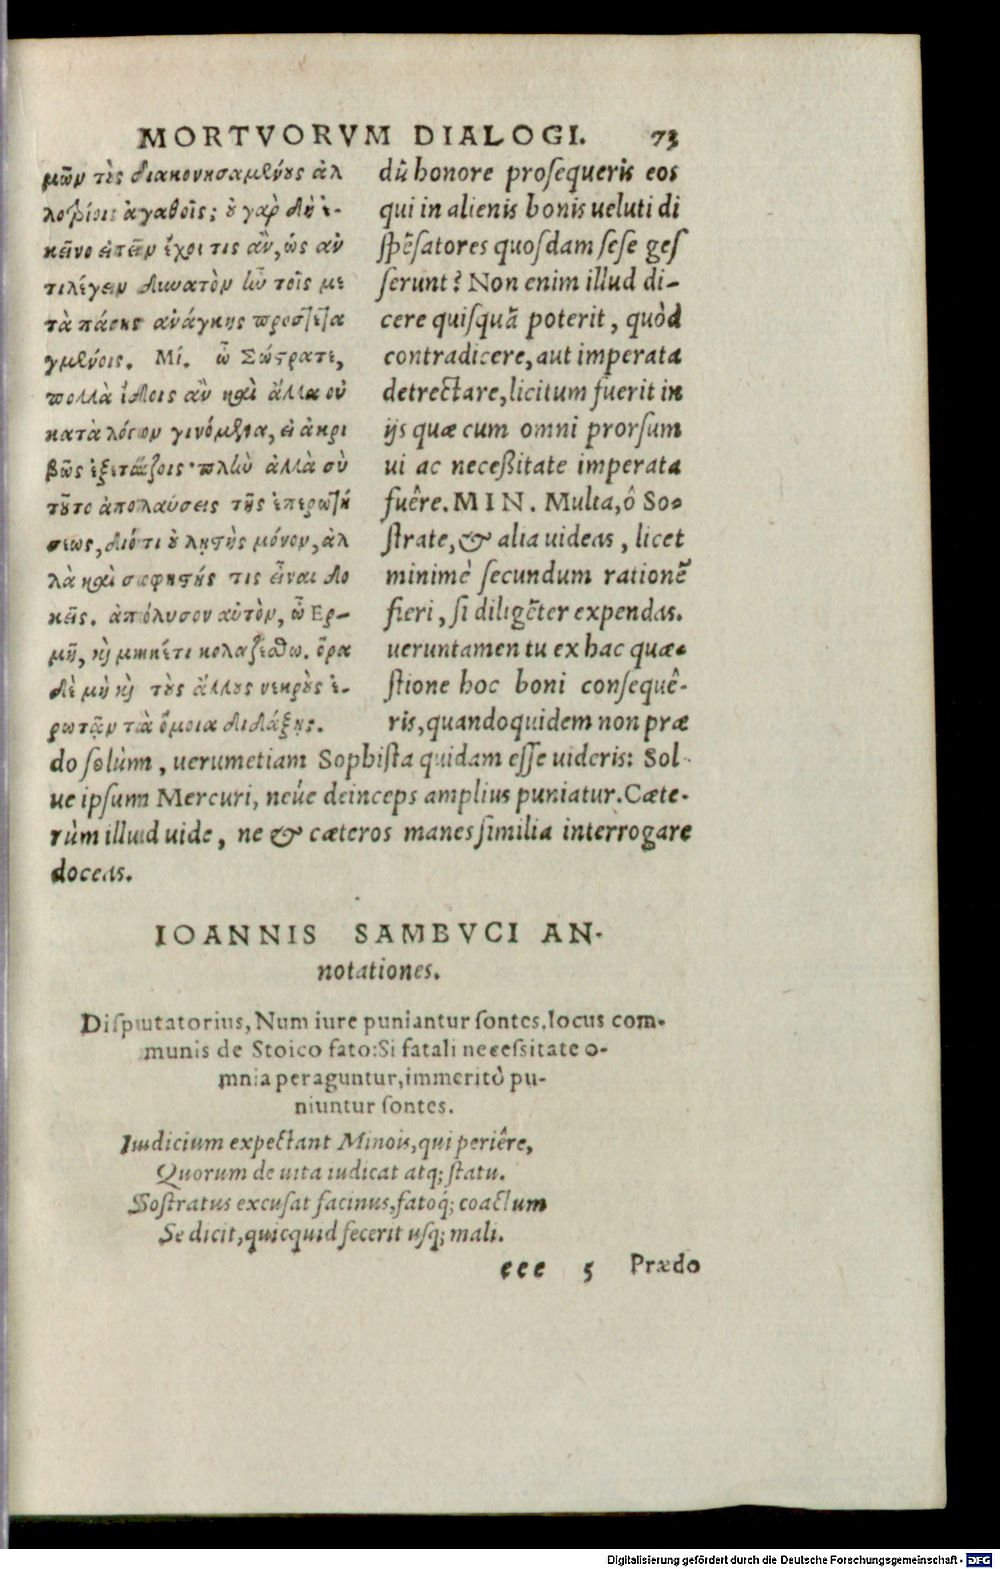 MORTVORVM DIALOGI. 73
μῶν τὸς διακονησαμένους ἀλ
λοτρίοις ἀγαθοῖς; ὀ γαρ δὴ ἐ-
κεῖνο εἰπεῖν ἔχοι τις ἂν, ὡς ἀν
τιλέγειν δυνατὸν ἦν τοῖς με
τὰ πάσης ἀνάγκης προστετα
γμένοις. Μί. ὦ Σώστρατε,
πολλὰ ἴδοις ἂν καὶ ἄλλα οὐ
κατὰ λόγον γινόμενα, εἰ ἀκρι
βῶς ἐξετάζοις· πλὴν ἀλλὰ σὺ
τοῦτο ἀπολαύσεις τῆς ἐπερωτή
σεως, διότι οὐ λῃστὴς μόνον, ἀλ
λὰ καὶ σοφιστής τις εἶναι δο
κεῖς. ἀπόλυσον αὐτὸν, ὦ Ερ-
μῆ, καὶ μηκέτι κολαζέσθω. ὅρα
δὲ μὴ καὶ τοὺς ἄλλους νεκροὺς ἐ-
ρωτᾷν τὰ ὅμοια διδάξῃς.
dū honore prosequeris eos
qui in alienis bonis ueluti di
spēsatores quosdam sese ges
serunt? Non enim illud di-
cere quisquã poterit, quòd
contradicere, aut imperata
detrectare, licitum fuerit in
ijs quæ cum omni prorsum
ui ac necessitate imperata
fuêre. MIN. Multa, ô So-
strate, & alia uideas, licet
minimè secundum rationē
fieri, si diligēter expendas.
ueruntamen tu ex hac quæ-
stione hoc boni consequê-
ris, quandoquidem non præ
do solùm, uerumetiam Sophista quidam esse uideris: Sol-
ue ipsum Mercuri, neúe deinceps amplius puniatur. Cæte-
rùm illud uide, ne & cæteros manes similia interrogare
doceas.
IOANNIS SAMBVCI AN-
notationes.
Disputatorius, Num iure puniantur sontes, locus com-
munis de Stoico fato: Si fatali necessitate o-
mnia peraguntur, immeritò pu-
niuntur sontes.
Iudicium expectant Minois, qui periêre,
Quorum de uita iudicat atq; statu.
Sostratus excusat facinus, fatoq́; coactum
Se dicit, quicquid fecerit usq; mali.
eee 5 Prædo
Digitalisierung gefördert durch die Deutsche Forschungsgemeinschaft - DFG